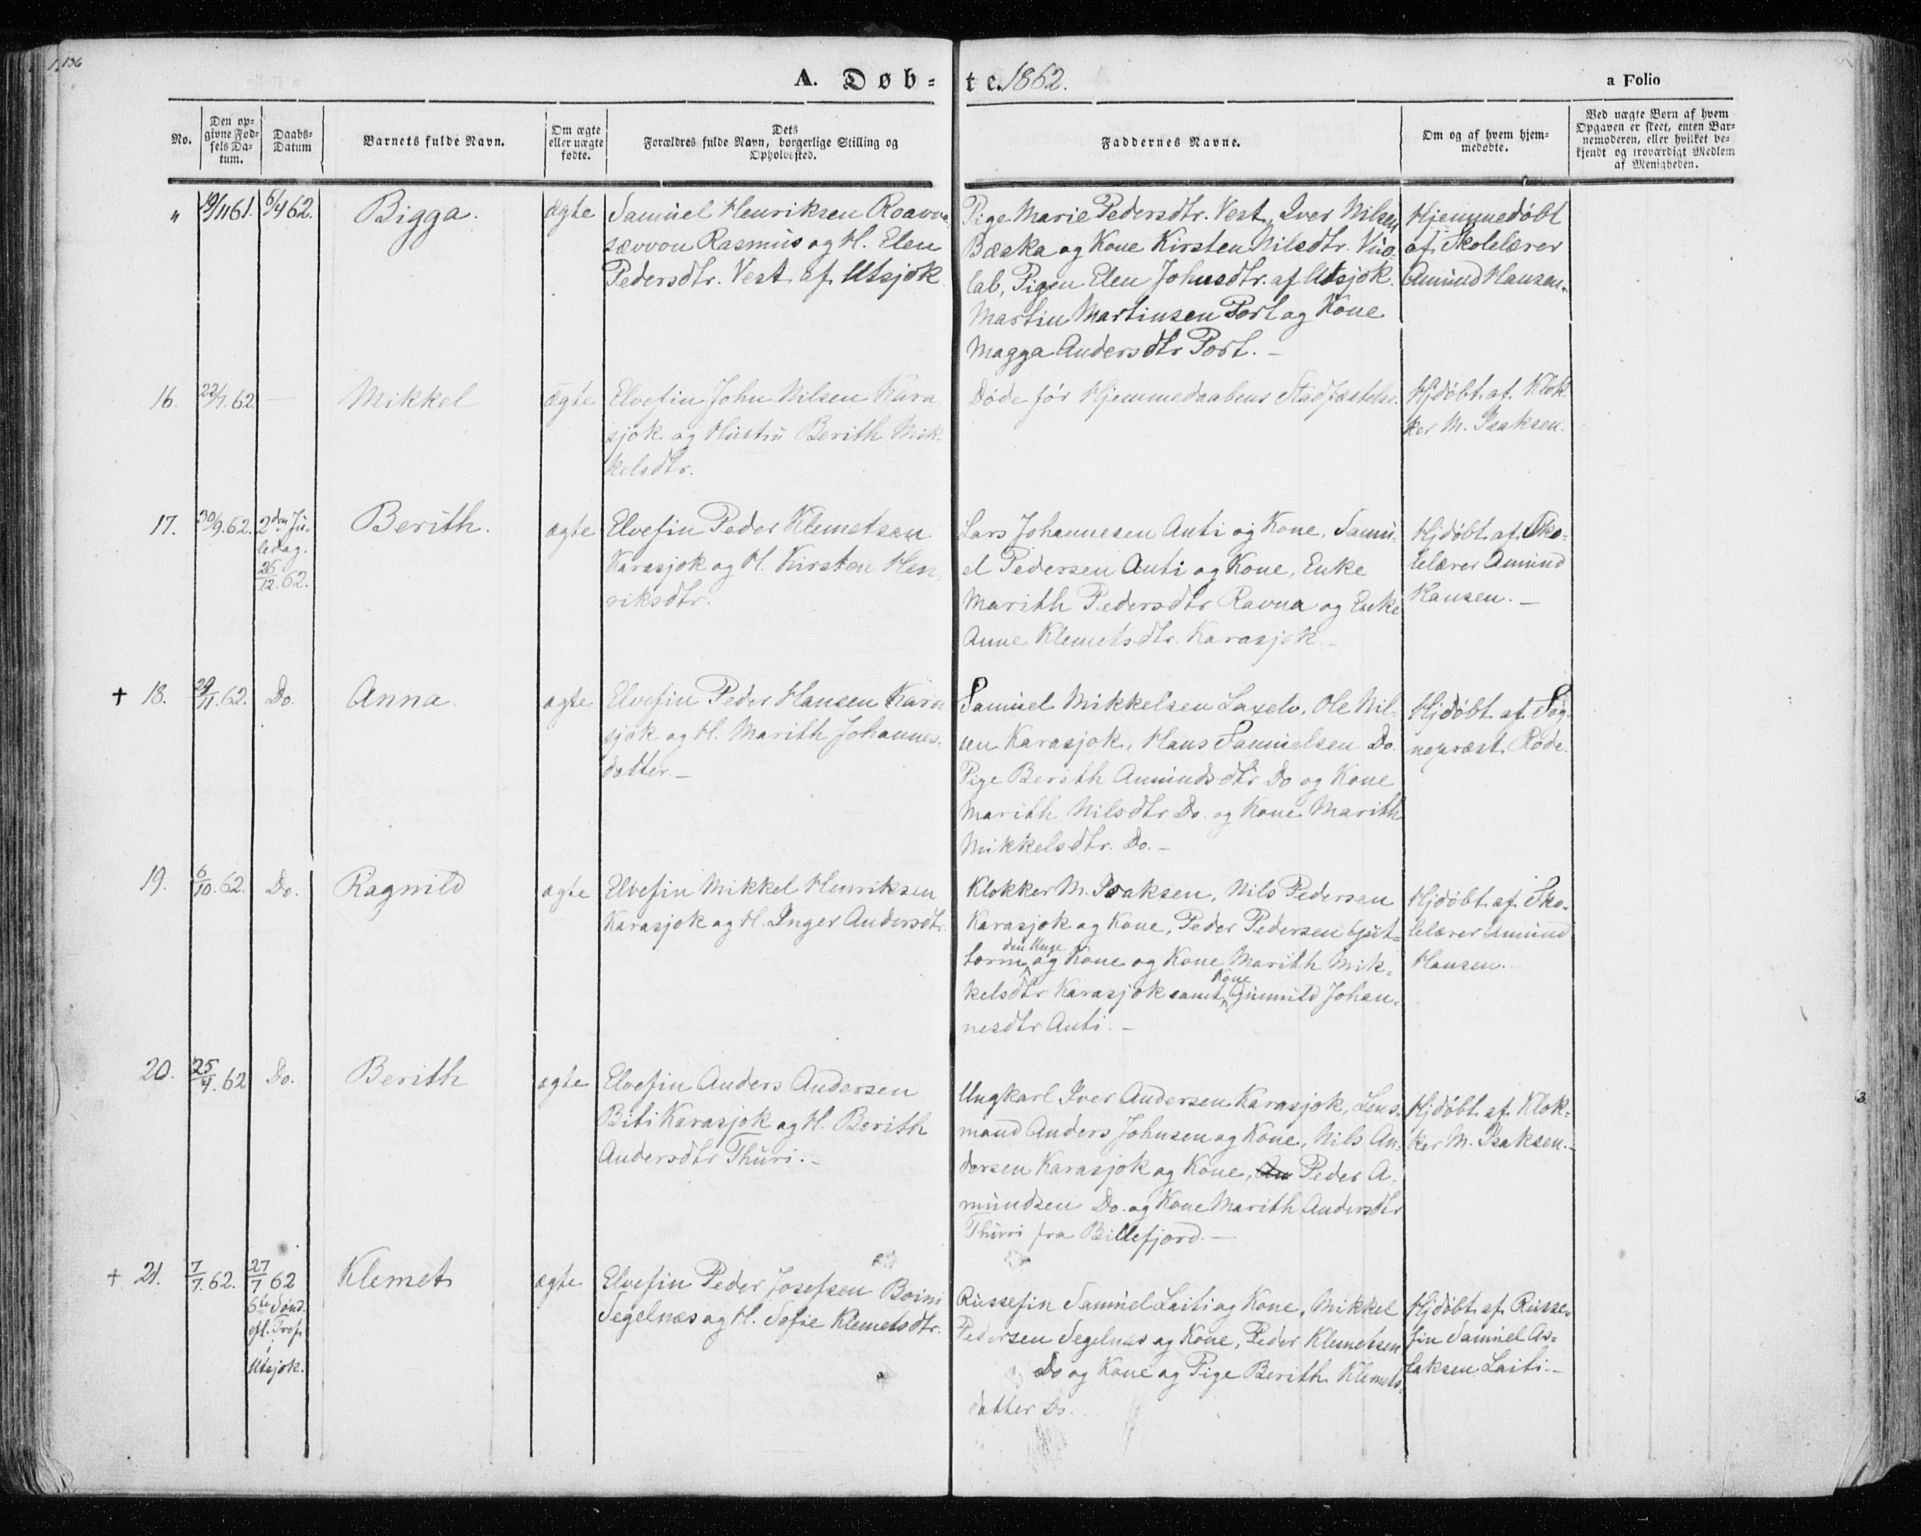 136
A. Døb-te. 1862.
a Folio
No.
Den op-
givne Fød-
sels Da-
tum.
Daabs-
Datum
Barnets fulde Navn.
Om ægte
eller uægte
fødte.
Dets
Forældres fulde Navn, borgerlige Stilling og
Opholdssted.
Faddernes Navne.
Om og af hvem hjem-
medøbte.
Ved uægte Børn af hvem
Opgaven er skeet, enten Bar-
nemoderen, eller hvilket be-
kjendt og troværdigt Medlem
af Menigheden.
" 19/11 61. 6/4 62. Bigga. ægte
Samuel Henriksen Roavve
sævvon Rasmus og H. Elen
Pedersdtr. Vest af Utsjok.
Pige Marie Pedersdtr. Vest, Iver Nilsen
Bæska og Kone Kirsten Nilsdtr. Vuo-
lab, Pigen Elen Johnsdtr. af Utsjok.
Martin Martinsen Port og Kone
Magga Andersdtr Port. -
Hjemmedøbt
af Skolelærer
Amund Hansen.
16. 22/1. 62. - Mikkel ægte
Elvefin John Nilsen Kara
sjok og Hustru Berith Mik-
kelsdtr.
Døde før Hjemmedaabens Stadfæstelse.
Hjdøbt af Klok
ker M. Isaksen.
17. 30/9. 62. 2den Ju-
ledag.
26/12. 62.
Berith. ægte
Elvefin Peder Klemetsen
Karasjok og H. Kirsten Hen-
riksdtr.
Lars Johannesen Anti og Kone, Samu-
el Pedersen Anti og Kone, Enke
Marith Pedersdtr Ravna og Enke
Anne Klemetsdtr. Karasjok. -
Hjdøbt af Sko-
lelærer Amund
Hansen. -
+ 18. 29/11. 62. Do. Anna. ægte
Elvefin Peder Hansen Kara
sjok og H. Marith Johannes-
datter. -
Samuel Mikkelsen Laxelv, Ole Nil-
sen Karasjok, Hans Samuelsen Do.
Pige Berith Amundsdtr Do og Kone
Marith Nilsdtr Do. og Kone Marith
Mikkelsdtr. Do. -
Hjdøbt af Sog-
nepræst Rode.
19. 6/10. 62. Do. Ragnild ægte
Elvefin Mikkel Henriksen
Karasjok og H. Inger Andersdtr.
Klokker M. Isaksen, Nils Pedersen
Karasjok og Kone, Peder Pedersen Gut-
torm den Unge og Kone og Kone Marith Mik-
kelsdtr Karasjok samt Kone Gunnild Johan-
nesdtr Anti. -
Hjdøbt af Sko-
lelærer Amund
Hansen.
20. 25/4. 62 Do. Berith ægte
Elvefin Anders Andersen
Biti Karasjok og H. Berith
Andersdtr Thuri. -
Ungkarl Iver Andersen Karasjok, Lens-
mand Anders Johnsen og Kone, Nils An-
dersen Karasjok og Kone, An Peder A-
mundsen Do. og Kone Marith Andersdtr
Thurri fra Billefjord. -
Hjdøbt af Klok-
ker M. Isaksen. -
+ 21. 7/7. 62. 27/7 62
6te Sønd.
eft. Tref.
i
Utsjok.
Klemet ægte
Elvefin Peder Josefsen Boini
Segelnæs og H. Sofie Klemetsdtr.
Russefin Samuel Laiti og Kone, Mikkel
Pedersen Segelnæs og Kone, Peder Klemetsen
Do og Kone og Pige Berith Klemets-
datter Do.
Hjdøbt af Russe-
fin Samuel As-
laksen Laiti. -